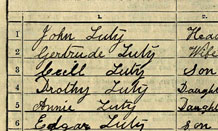 1.
1 John Luty Head
2 Gertrude Luty Wife
3 Cecil Luty Son
4 Drothy Luty Daught
5 Annie Luty Daught
6 Edgar Luty Son